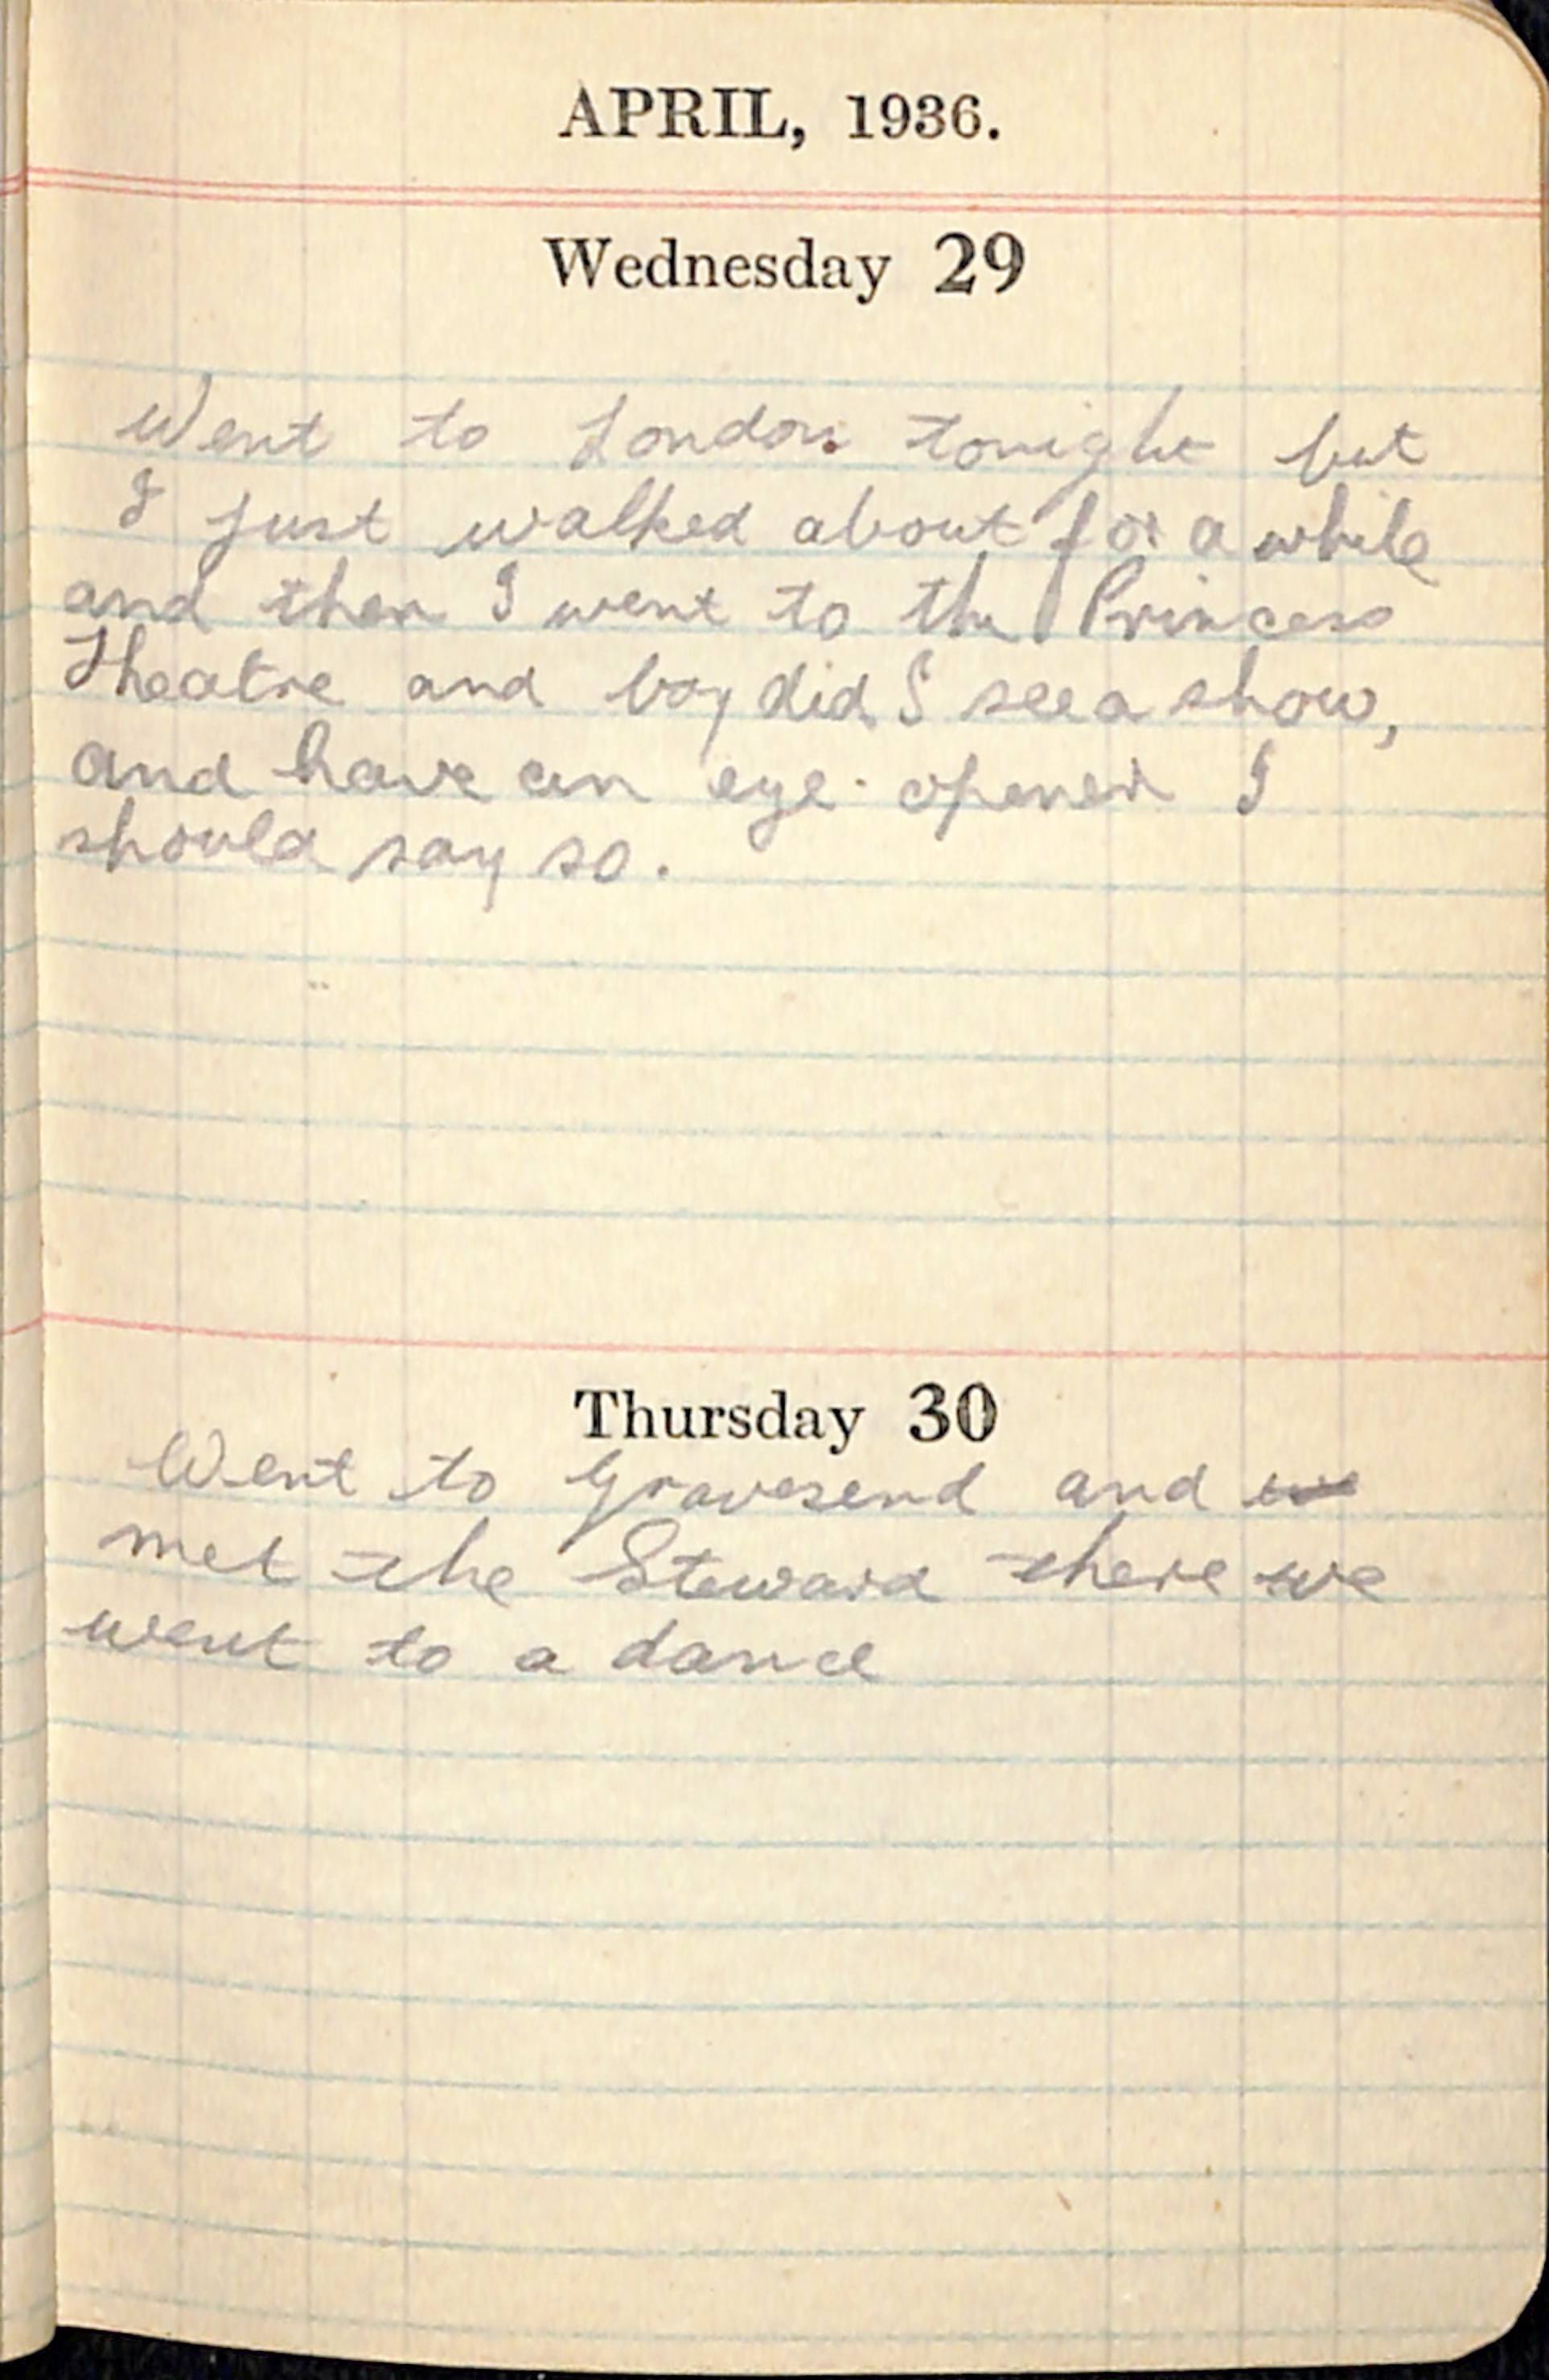 APRIL, 1936.
Wednesday 29
Went to London tonight but
I just walked about for a while
and then I went to the Princess
Theatre and boy did I see a show,
and have an eye-opener I
should say so.
Thursday 30
Went to Gravesend and
met the Steward there we
went to a dance